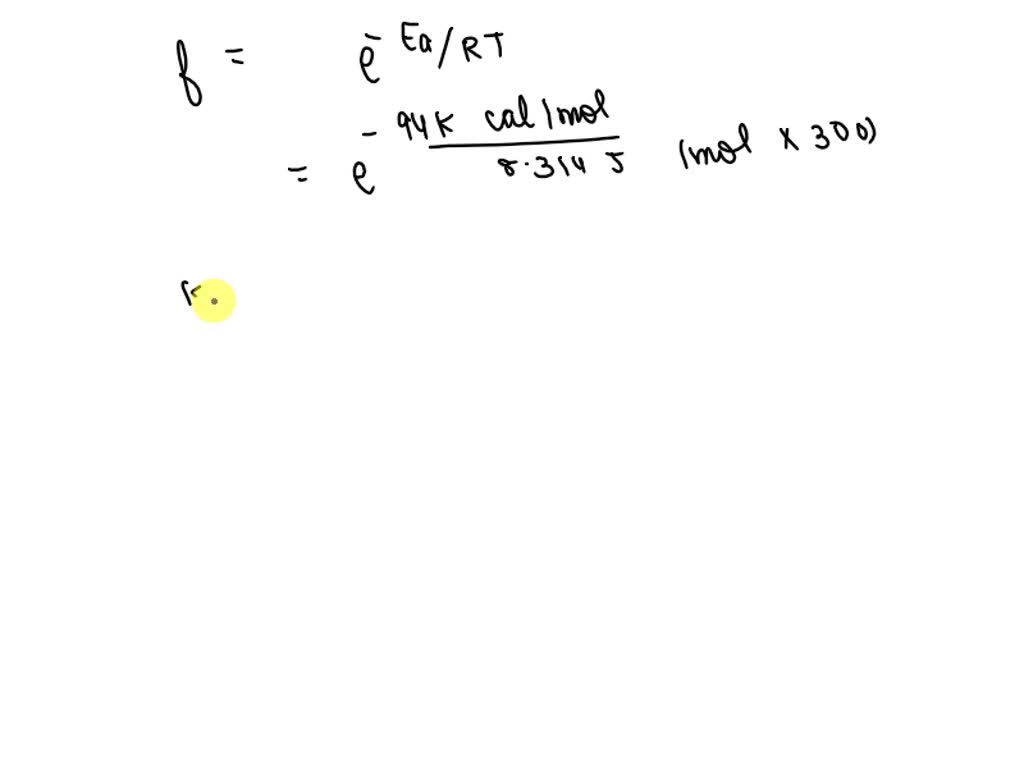 f = e^-Ea/RT
= e^-94K cal/mol / 8.314 J /mol x 300)
K